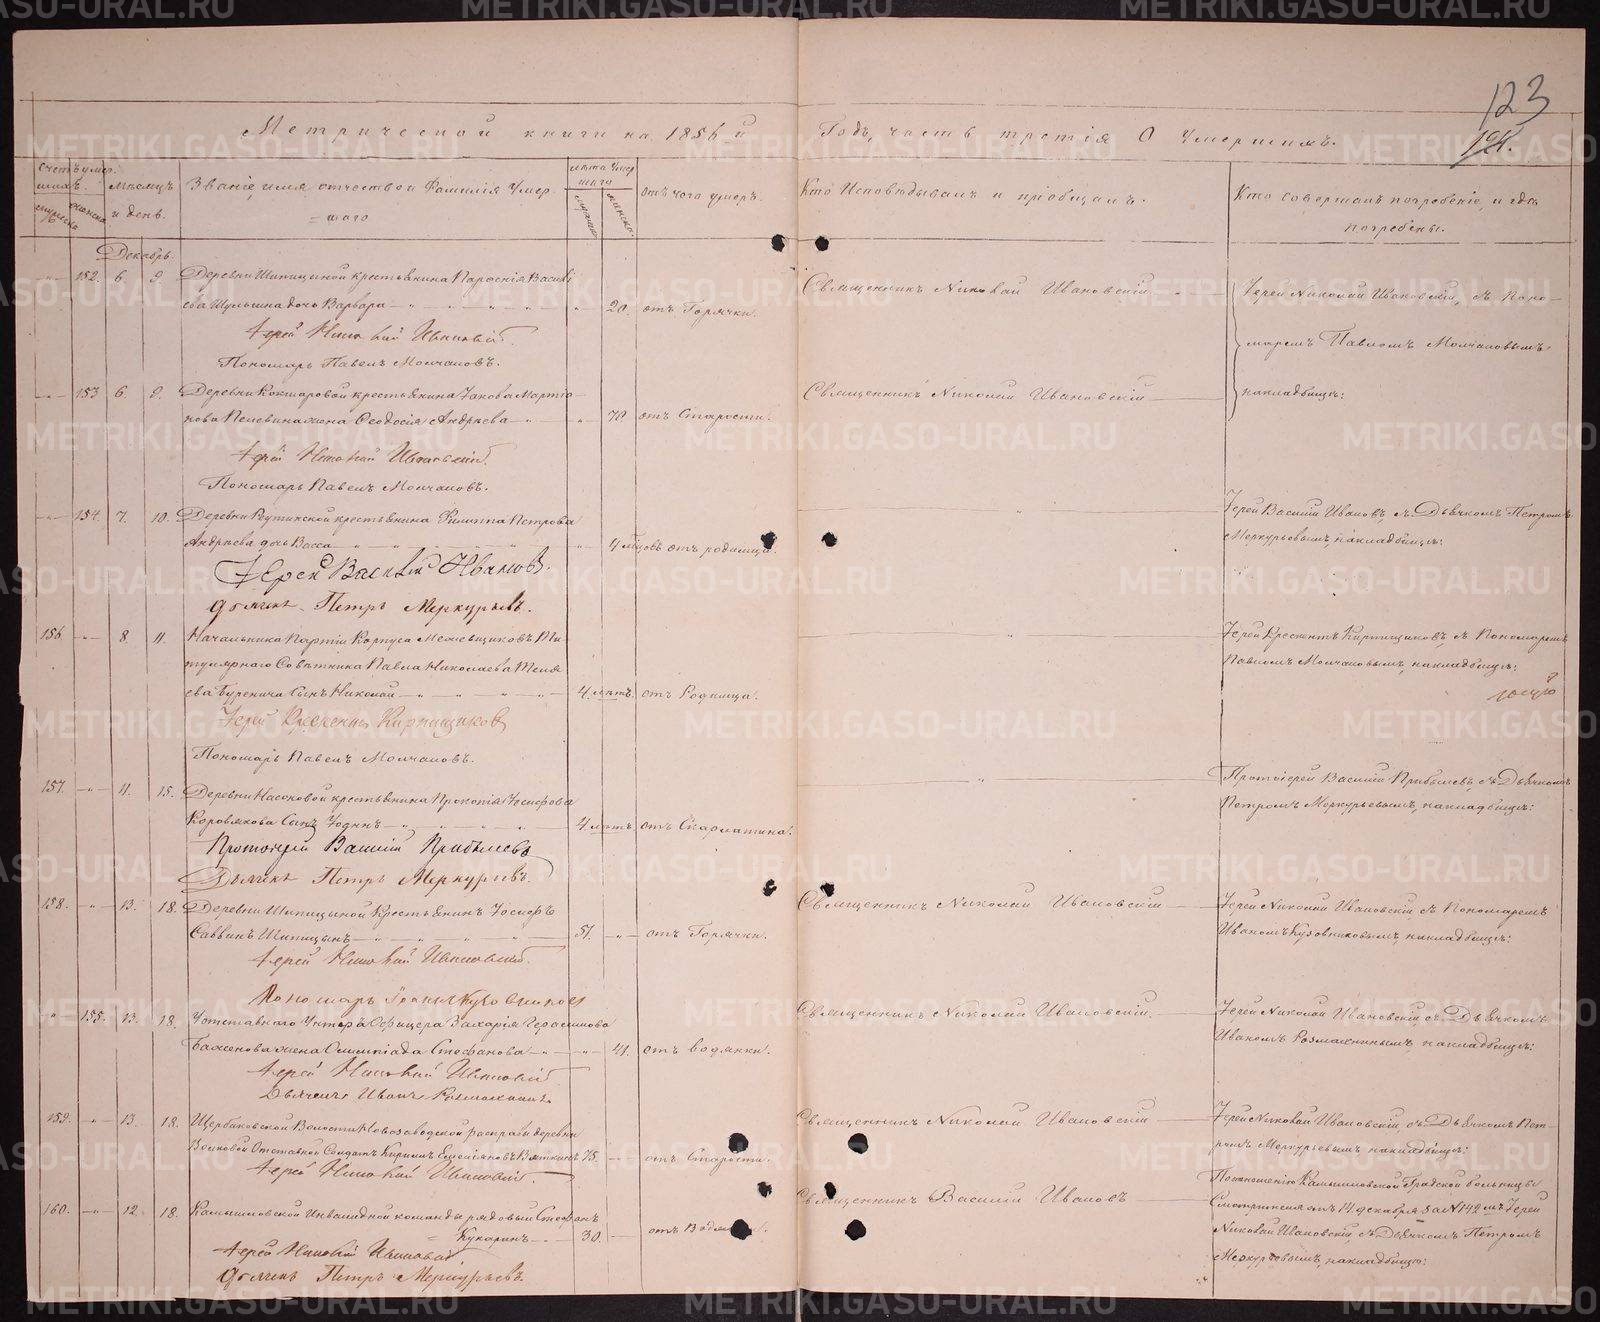 123
124.
Метрической книги на 1856й Годъ, часть третія О Умершихъ.
Счетъ умер
шихъ.
мужеска
женска
Мѣсяцъ
и день.
Званіе, имя, отчество и Фамилія Умер
= шаго
лѣта Умер
шаго
мужеск.
женска.
отъ чего умеръ.
Кто Исповѣдывалъ и пріобщалъ.
Кто совершалъ погребеніе, и гдѣ
погребены.
Декабрь.
152. 6 9. Деревни Шипицыной крестьянина Васи
ева дочь Варвара 20. отъ Горячки.
Священникъ Николай Ивановскій
Іерей Николай Ивановскій, съ Поно-
маремъ Павломъ Молчановымъ
на кладбищѣ:
Іерей Николай Ивановскій.
Пономарь Павелъ Молчановъ.
153 6. 9. Деревни Кокшаровой крестьянина Іакова Мартіа
нова Пелевина жена Ѳеодосія Андреева 70. отъ Старости.
Священникъ Николай Ивановскій
Іерей Николай Ивановскій.
Пономарь Павелъ Молчановъ.
154. 7. 10. Деревни Реутинской крестьянина Филиппа Петрова
Андреева дочь Васса 4 мѣсцовъ отъ родимца.
Іерей Василій Ивановъ, съ Дьячкомъ Петромъ
Меркурьевымъ, на кладбищѣ:
Іерей Василій Ивановъ.
дьячекъ Петръ Меркурьевъ.
156. 8. 11. Начальника Партіи Корпуса Межевщиковъ Ти
тулярнаго Совѣтника Павла Николаева
Сынъ Николай 4. лѣтъ. отъ Родимца.
Іерей Крискентъ Кирпищиковъ, съ Пономаремъ
Павломъ Молчановымъ, на кладбищѣ:
Іерей Крискентъ Кирпищиковъ
Пономарь Павелъ Молчановъ.
157. 11. 15. Деревни Насоновой крестьянина Прокопія Іосифова
Коровякова Сынъ Іоаннъ 4. лѣтъ отъ Скарлатина.
Протоіерей Василій Прибылевъ, съ Дьячкомъ
Петромъ Меркурьевымъ, на кладбищѣ:
Протоіерей Василій Прибылевъ
Дьячекъ Петръ Меркурьевъ.
158. 13. 18. Деревни Шипицыной Крестьянинъ Іосифъ
Саввинъ Шипицынъ 51. отъ Горячки.
Священникъ Николай Ивановскій
Іерей Николай Ивановскій съ Пономаремъ
Иваномъ Кузовниковымъ, на кладбищѣ:
Іерей Николай Ивановскій.
Пономарь Иванъ Кузовниковъ
155. 13. 18. Унтеръ Офицера Захарія Герасимова
Баженова жена Олимпіада Стефанова 41. отъ водянки.
Священникъ Николай Ивановскій.
Іерей Николай Ивановскій, съ Дьячкомъ
Иваномъ на кладбищѣ:
Іерей Николай Ивановскій
Дьячекъ Иванъ
159. 13. 18. Щербаковской Волости Новозаводской расправы деревни
Волковой Отставной Солдатъ Кириллъ Вяткинъ 75. отъ Старости.
Священникъ Николай Ивановскій
Іерей Николай Ивановскій, съ Дьячкомъ Пет-
ромъ Меркурьевымъ на кладбищѣ:
Іерей Николай Ивановскій.
160. 12. 18. Камышловской Инвалидной команды рядовый Стефанъ
Кукаринъ 30. отъ
Священникъ Василій Ивановъ
По отношенію Камышловской Градской больницы
Смотрителя отъ 14 декабря за №142 мъ Іерей
Николай Ивановскій съ Дьячкомъ Петромъ
Меркурьевымъ, на кладбищѣ:
Іерей Николай Ивановскій
дьячекъ Петръ Меркурьевъ.
METRIKI.GASO-URAL.RU